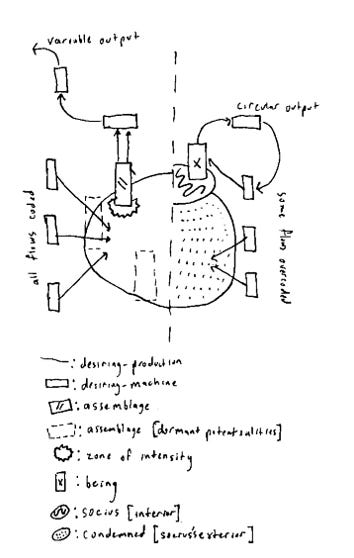 variable output
circular output
all flows coded
some flows overcoded
x
: desiring-production
: desiring-machine
: assemblage
: assemblage [dormant potentialities]
: zone of intensity
x : being
: socius [interior]
: condemned [socius's exterior]